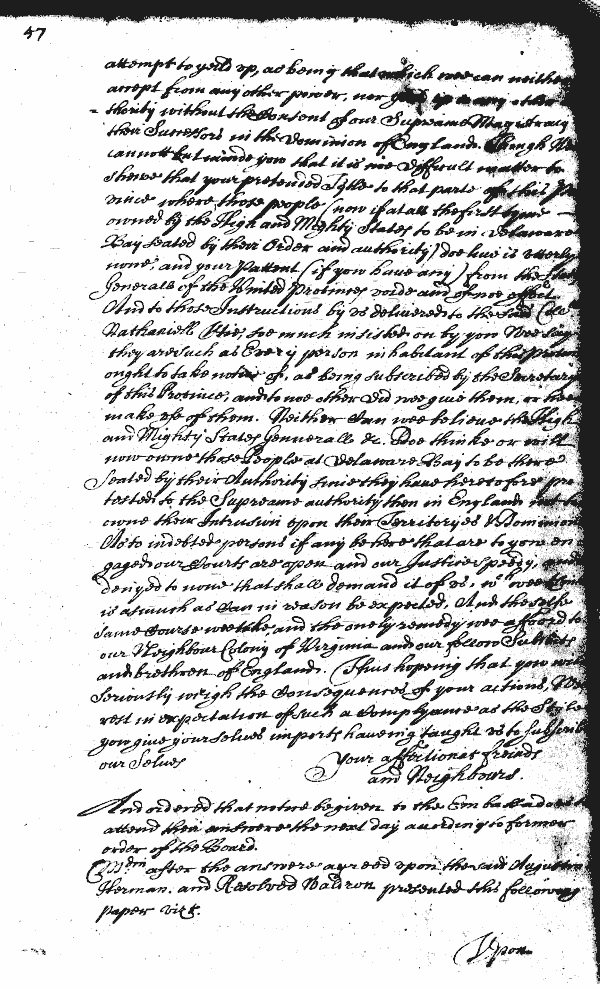 57
attempt to yeild vp, as being that which wee can neither
accept from any other power, nor yeild vp to any other
thority without the Consent of our Supreame Magistracy
their Sucessors in the Dominion of England. Though We
cannott but minde you that it is noe difficult matter to
shewe that your pretended Tytle to that parte of this Pro
vince where those people (now if at all the first tyme
owned by the High and Mighty States to be in Delaware
Bay seated by their Order and authority) doe live is vtterly
none, and your Pattent (if you have any) from the States
Generall of the United Provinces voide and of noe effect
And to those Instructions by vs delivered to the said Coll
Nathaniell Vtie, soe much insisted on by you Wee say
they are such as Every person inhabitant of this Province
ought to take notice of, as being subscribed by the Secretary
of this Province, and to noe other did wee give them, or hee
make vse of them. Neither Can wee believe the High
and Mighty States Gennerall &c. Doe thinke or will
now owne those People at Delaware Bay to be there
Seated by their Authority since they have heretofore pro
tested to the Supreame authority then in England not to
owne their Intrusion vpon their Territoryes & Dominions
As to indebted persons if any be here that are to you en
gaged our Courts are open and our Justice speedy, and
denyed to none that shall demand it of vs, wch wee thinke
is asmuch as Can in reason be expected, And the selfe
same Course wee take, and the onely remedy wee afford to
our Neighbour Colony of Virginia and our fellow Subiects
and brethren of England. Thus hopeing that you will
Seriously weigh the Consequences of your actions, Wee
rest in expectation of such a Complyance as the Stile
you give your selves imports haveing taught vs to subscribe
our Selves
Your affectionat freinds
and Neighbours.
And ordered that notice be given to the Embassadors to
attend their answere the next day according to former
order of the Board.
after the answere agreed vpon the said Augustin
Herman. and Resolved Waldron presented this following
paper vizt.
Vpon